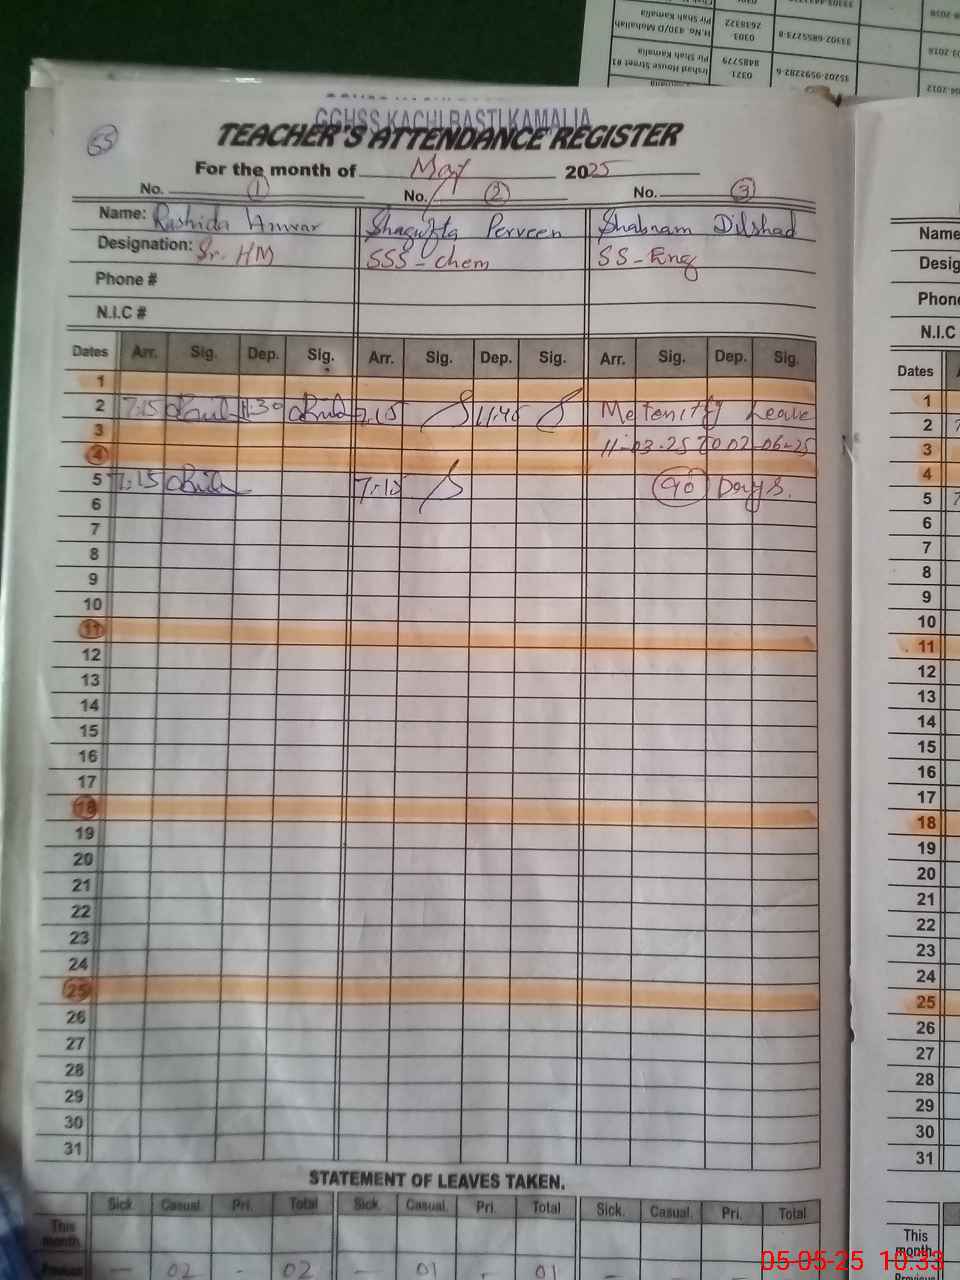 H.No. 430/D Mohallah
Pir Shah Kamalia
0303
2638322
33302-6855273-8
Irshad House Street #1
Pir Shah Kamalia
0321
8485779
35202-9592282-6
GGHSS KACHI BASTI KAMALIA
55
TEACHER'S ATTENDANCE REGISTER
For the month of May 2025
No. 1 No. 2 No. 3
Name: Rashida Anwar Shagufta Perveen Shabnam Dilshad
Designation: Sr. HM SSS-chem SS-Eng
Phone #
N.I.C #
Dates Arr. Sig. Dep. Sig. Arr. Sig. Dep. Sig. Arr. Sig. Dep. Sig.
1
2 7:15 11:30 7:15 11:45 Metenity Leave
3 11-03-25 To 02-06-25
4
5 7:15 7:15 90 Days.
6
7
8
9
10
11
12
13
14
15
16
17
18
19
20
21
22
23
24
25
26
27
28
29
30
31
STATEMENT OF LEAVES TAKEN.
Sick. Casual. Pri. Total Sick. Casual. Pri. Total Sick. Casual. Pri. Total
This
month.
Previous – 02 - 02 – 01 - 01 –
Name
Desig
Phone
N.I.C
Dates
1
2
3
4
5
6
7
8
9
10
11
12
13
14
15
16
17
18
19
20
21
22
23
24
25
26
27
28
29
30
31
This
month.
Previous
05-05-25 10:33